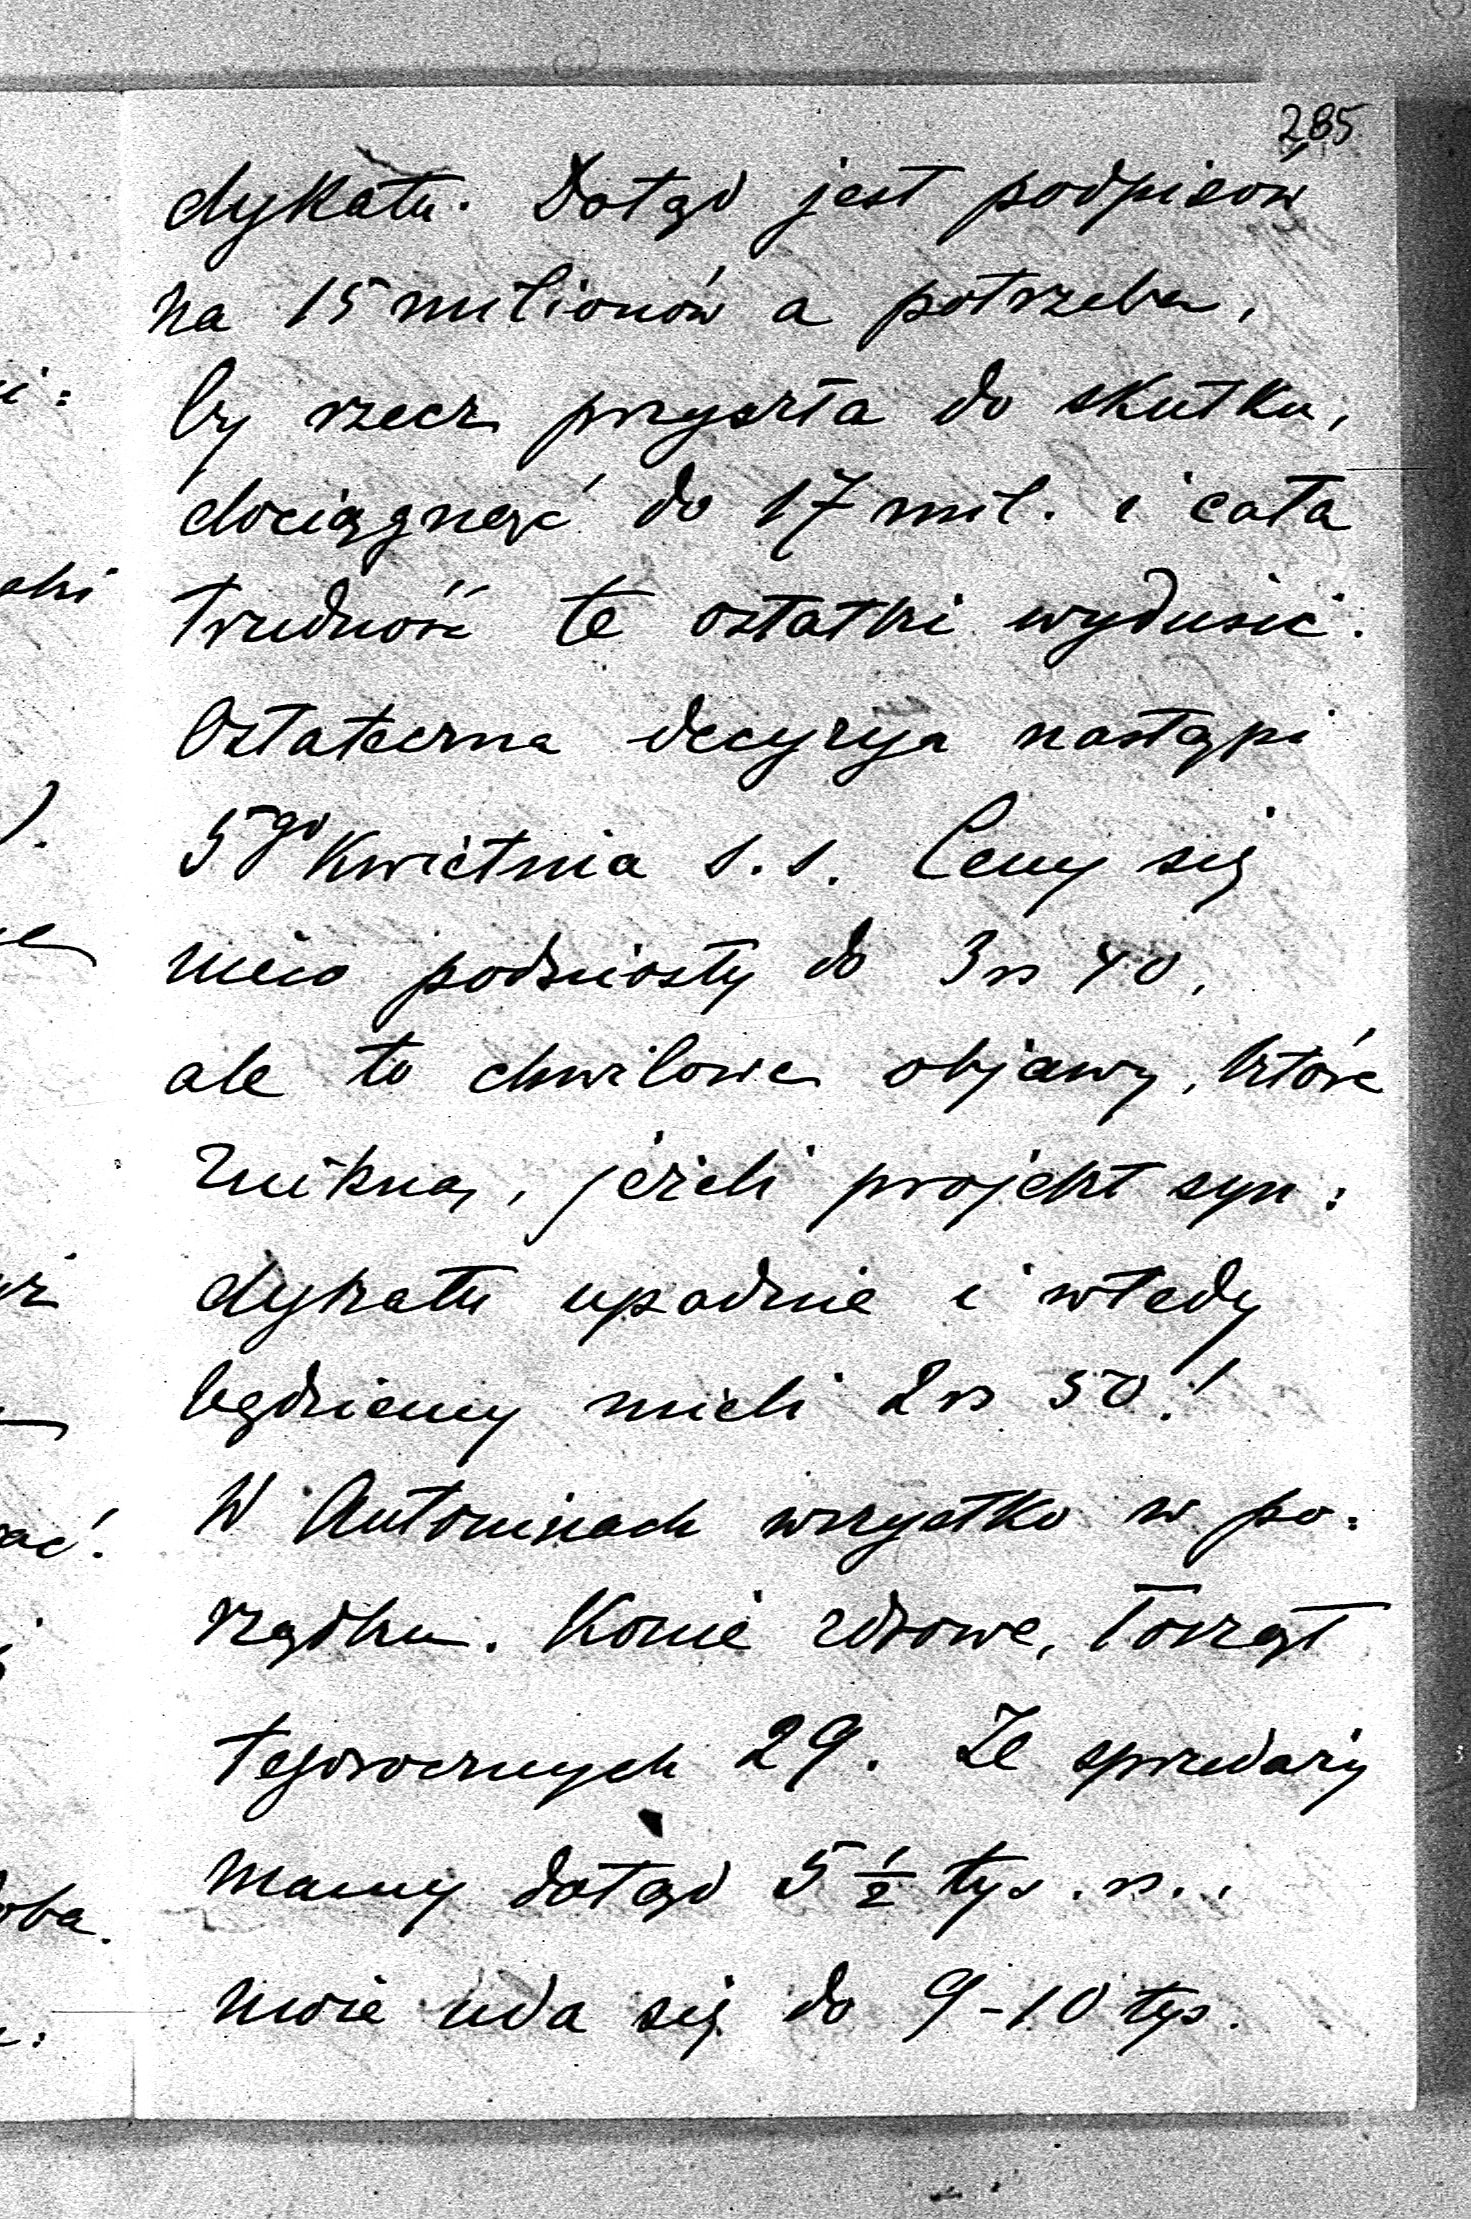 285
dykatu. Dotąd jest podpisów
na 15 milionów a potrzeba,
by rzecz przyszła do skutku,
dociągnąć do 17 mil. i cała
trudność te ostatki wydusić.
Ostateczna decyzyja nastąpi
5go Kwietnia s. s. Ceny się
nieco podniosły do 3 rs 40,
ale to chwilowe objawy, które
znikną, jeżeli projekt syn:
dykatu upadnie i wtedy
będziemy mieli 2 rs 50!
W Antoninach wszystko w po:
rządku. Konie zdrowe, łosząt
tegorocznych 29. Ze sprzedaży
mamy dotąd 5 1/2 tys. rs..
może uda się do 9-10 tys.